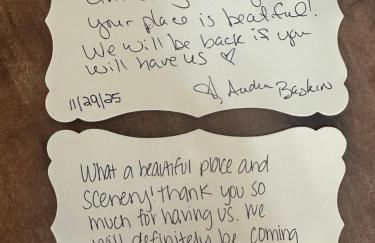 your place is beautiful!
We will be back if you
will have us ♡
11/29/25
Baskin
What a beautiful place and
scenery! thank you so
much for having us. We
will definitely be coming